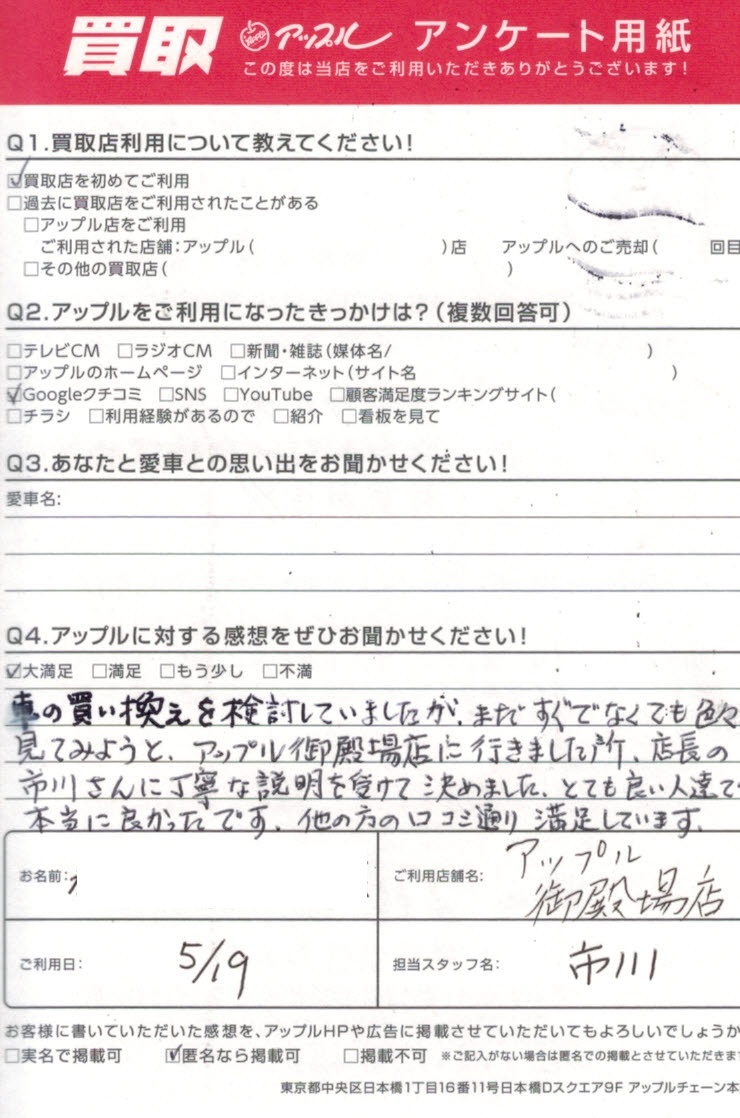 買取 Apple アップル アンケート用紙
この度は当店をご利用いただきありがとうございます!
Q1.買取店利用について教えてください!
☑買取店を初めてご利用
□過去に買取店をご利用されたことがある
□アップル店をご利用
ご利用された店舗:アップル( )店 アップルへのご売却( 回目
□その他の買取店( )
Q2.アップルをご利用になったきっかけは?(複数回答可)
□テレビCM □ラジオCM □新聞・雑誌(媒体名/ )
□アップルのホームページ □インターネット(サイト名 )
☑Googleクチコミ □SNS □YouTube □顧客満足度ランキングサイト(
□チラシ □利用経験があるので □紹介 □看板を見て
Q3.あなたと愛車との思い出をお聞かせください!
愛車名:
Q4.アップルに対する感想をぜひお聞かせください!
☑大満足 □満足 □もう少し □不満
車の買い換えを検討していましたが、まだすぐでなくても色々
見てみようと、アップル御殿場店に行きました所、店長の
市川さんに丁寧な説明を受けて決めました。とても良い人達で
本当に良かったです。他の方の口コミ通り満足しています。
お名前: ご利用店舗名: アップル
御殿場店
ご利用日: 5/19 担当スタッフ名: 市川
お客様に書いていただいた感想を、アップルHPや広告に掲載させていただいてもよろしいでしょうか
□実名で掲載可 ☑匿名なら掲載可 □掲載不可 ※ご記入がない場合は匿名での掲載とさせていただきます
東京都中央区日本橋1丁目16番11号日本橋Dスクエア9F アップルチェーン本